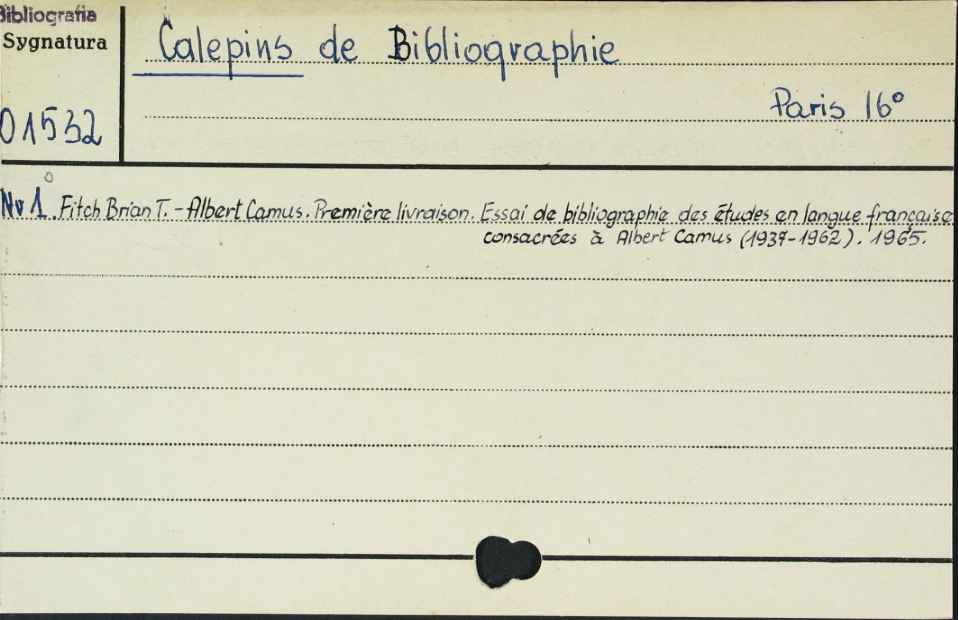 Bibliografia
Sygnatura
01532
Calepins de Bibliographie
Paris 16°
Nr 1. Fitch Brian T. - Albert Camus. Première livraison. Essai de bibliographie des études en langue française
consacrées à Albert Camus (1937-1962). 1965.